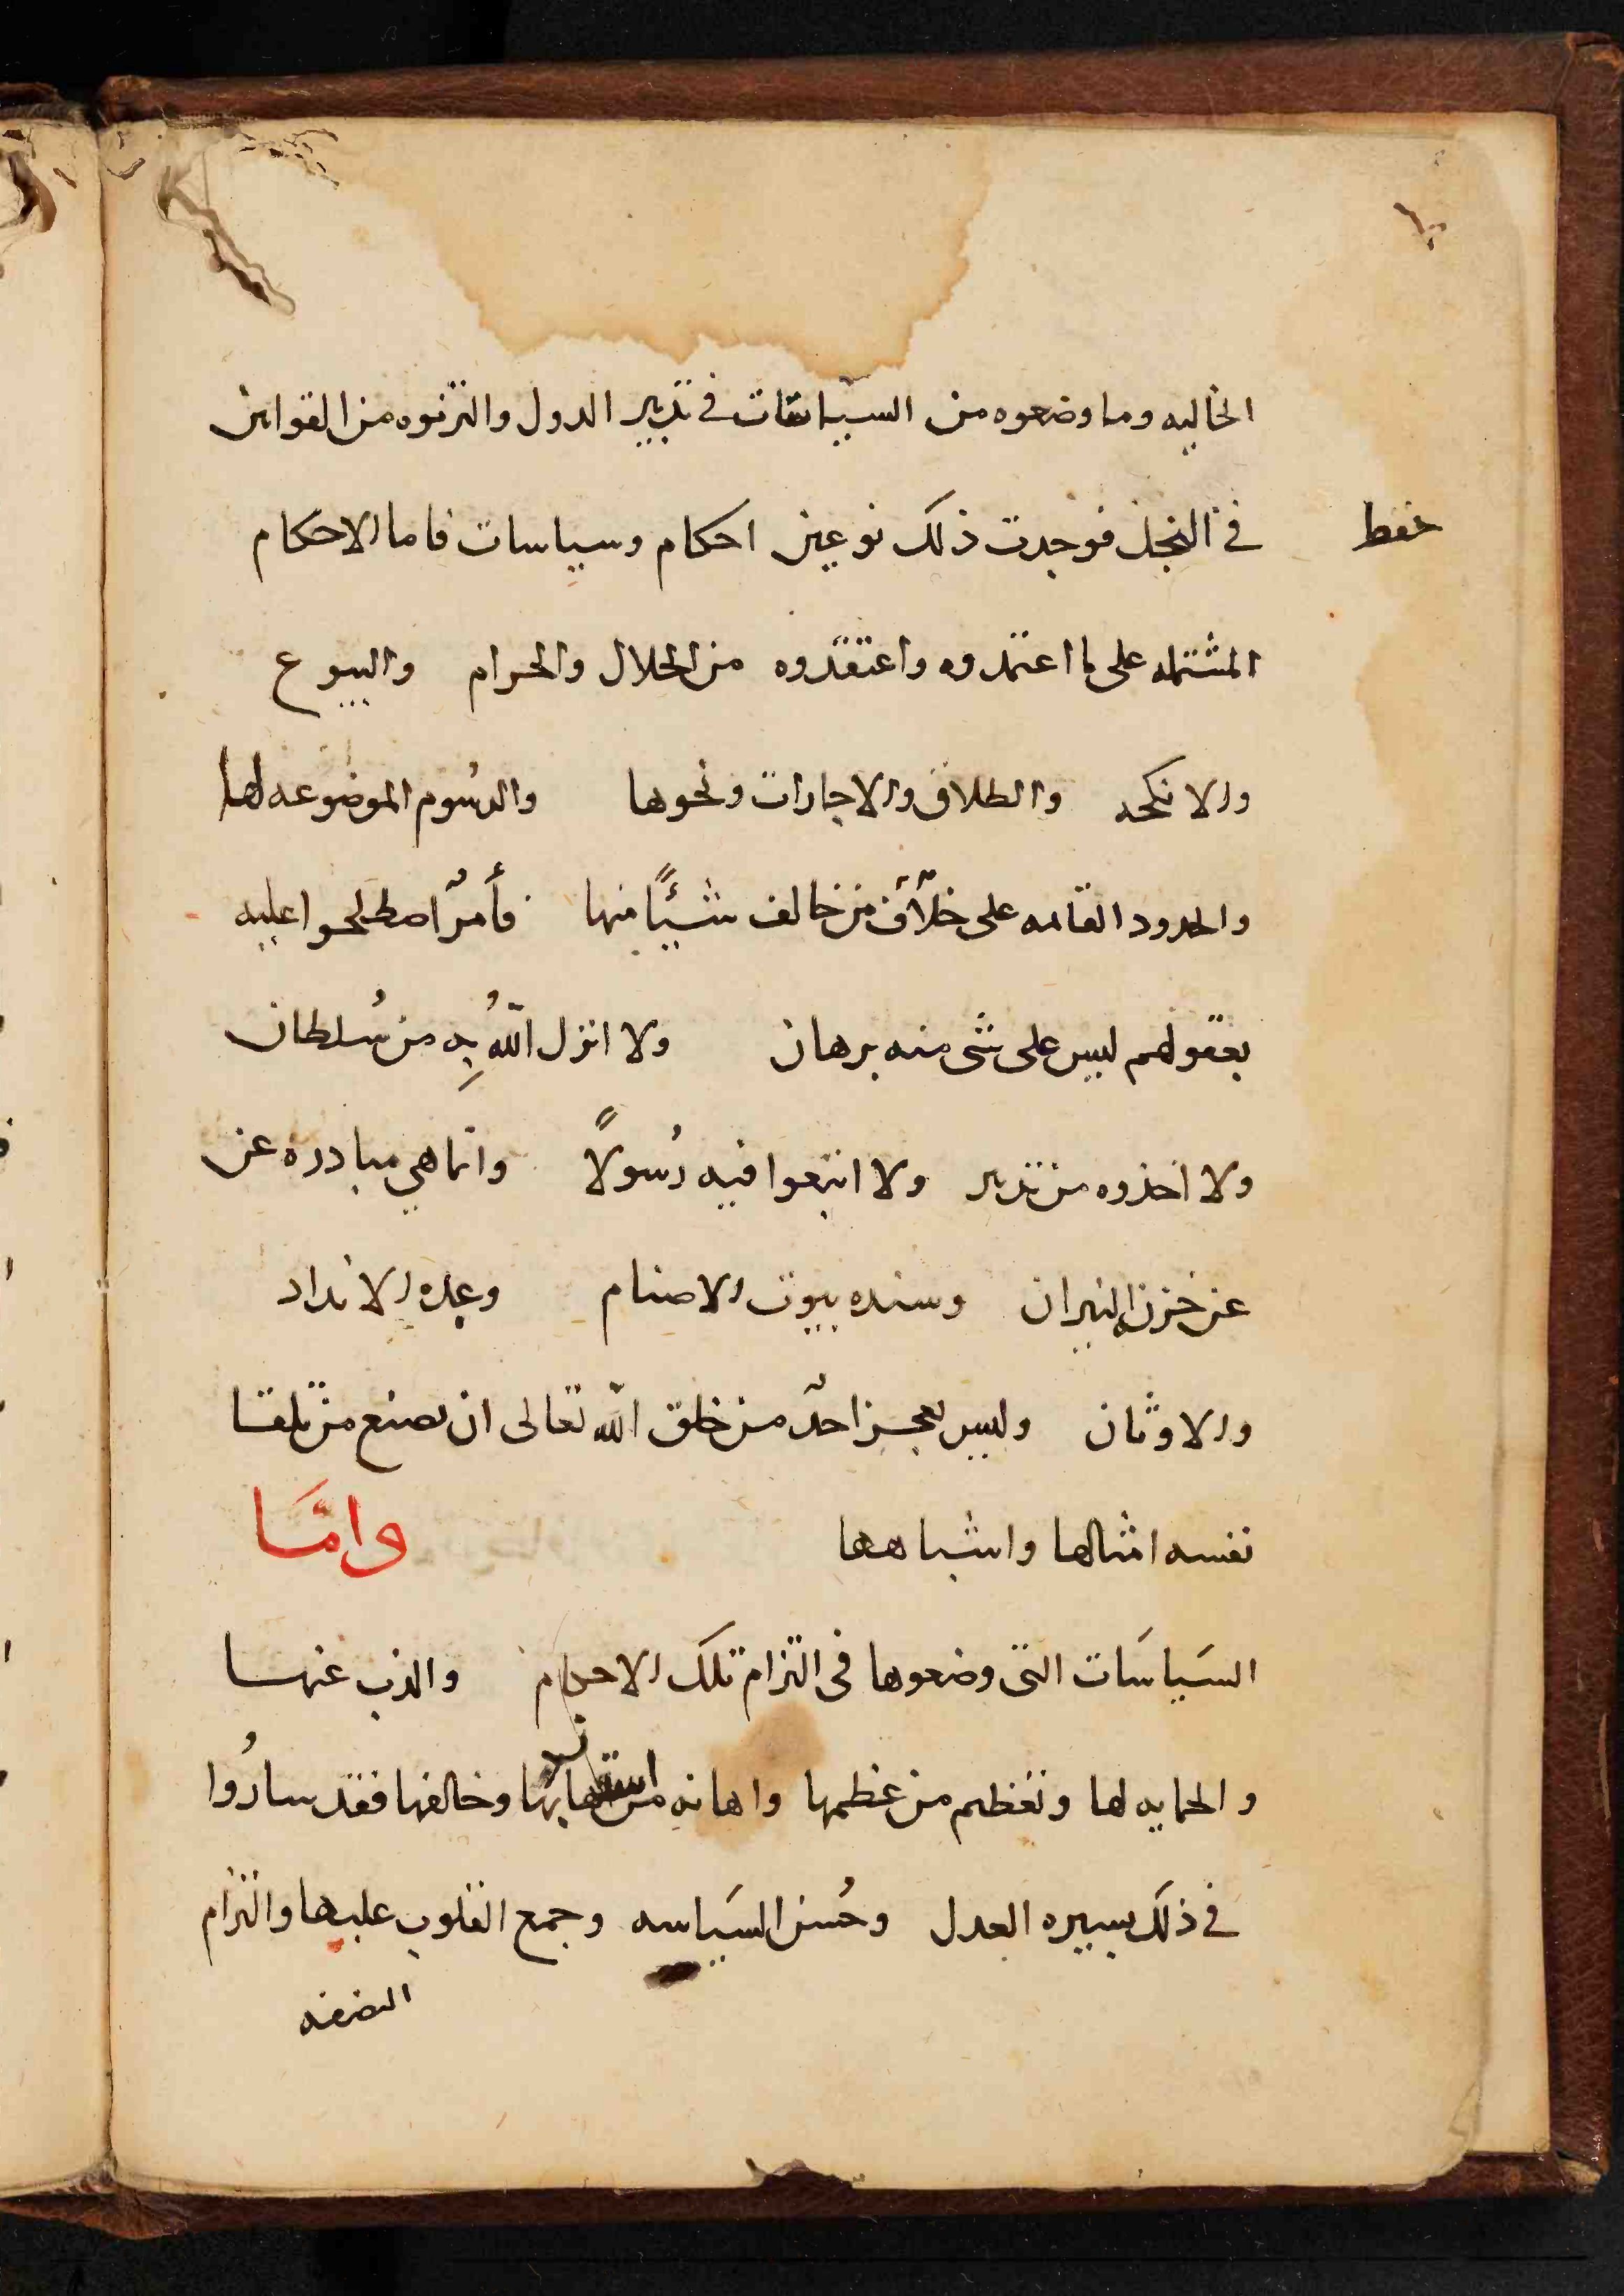 الخاليه وما وضعوه من السياسات في تدبير الدول والتزموه من القوانين
في النجل فوجدت ذلك نوعين احكام وسياسات فاما الاحكام
حفظ
المشتمله على ما اعتمدوه واعتقدوه من الحلال والحرام والبيوع
والانكحه والطلاق والاجارات ونحوها والرسُوم الموضوعه لها
والحدود القامه على خلآف من خالف شيئًا منها فأمرٌ اصطلحوا عليه
بعقولهم ليس على شى منه برهان ولا انزل اللهُ بِه من سُلطان
ولا اخذوه من تدبر ولا اتبعوا فيه رُسولاً وانما هي صادره عن
عن خزنه النيران وسدنه بيوت الاصنام وعبده الانداد
والاوثان وليس يعجز احدٌ من خلق الله تعالى ان يصنع من تلقا
نفسه امثالها واشباهها وامَّا
السَياسَات التى وضعوها فى التزام تلك الاحكام والذب عنها
والحمايه لها وتعظيم من عظمها واهانه من استهان بها وخالفها فقد سارُوا
في ذلك بسيره العدل وحُسن السَياسه وجمع القلوب عليها والتزام
النصفه